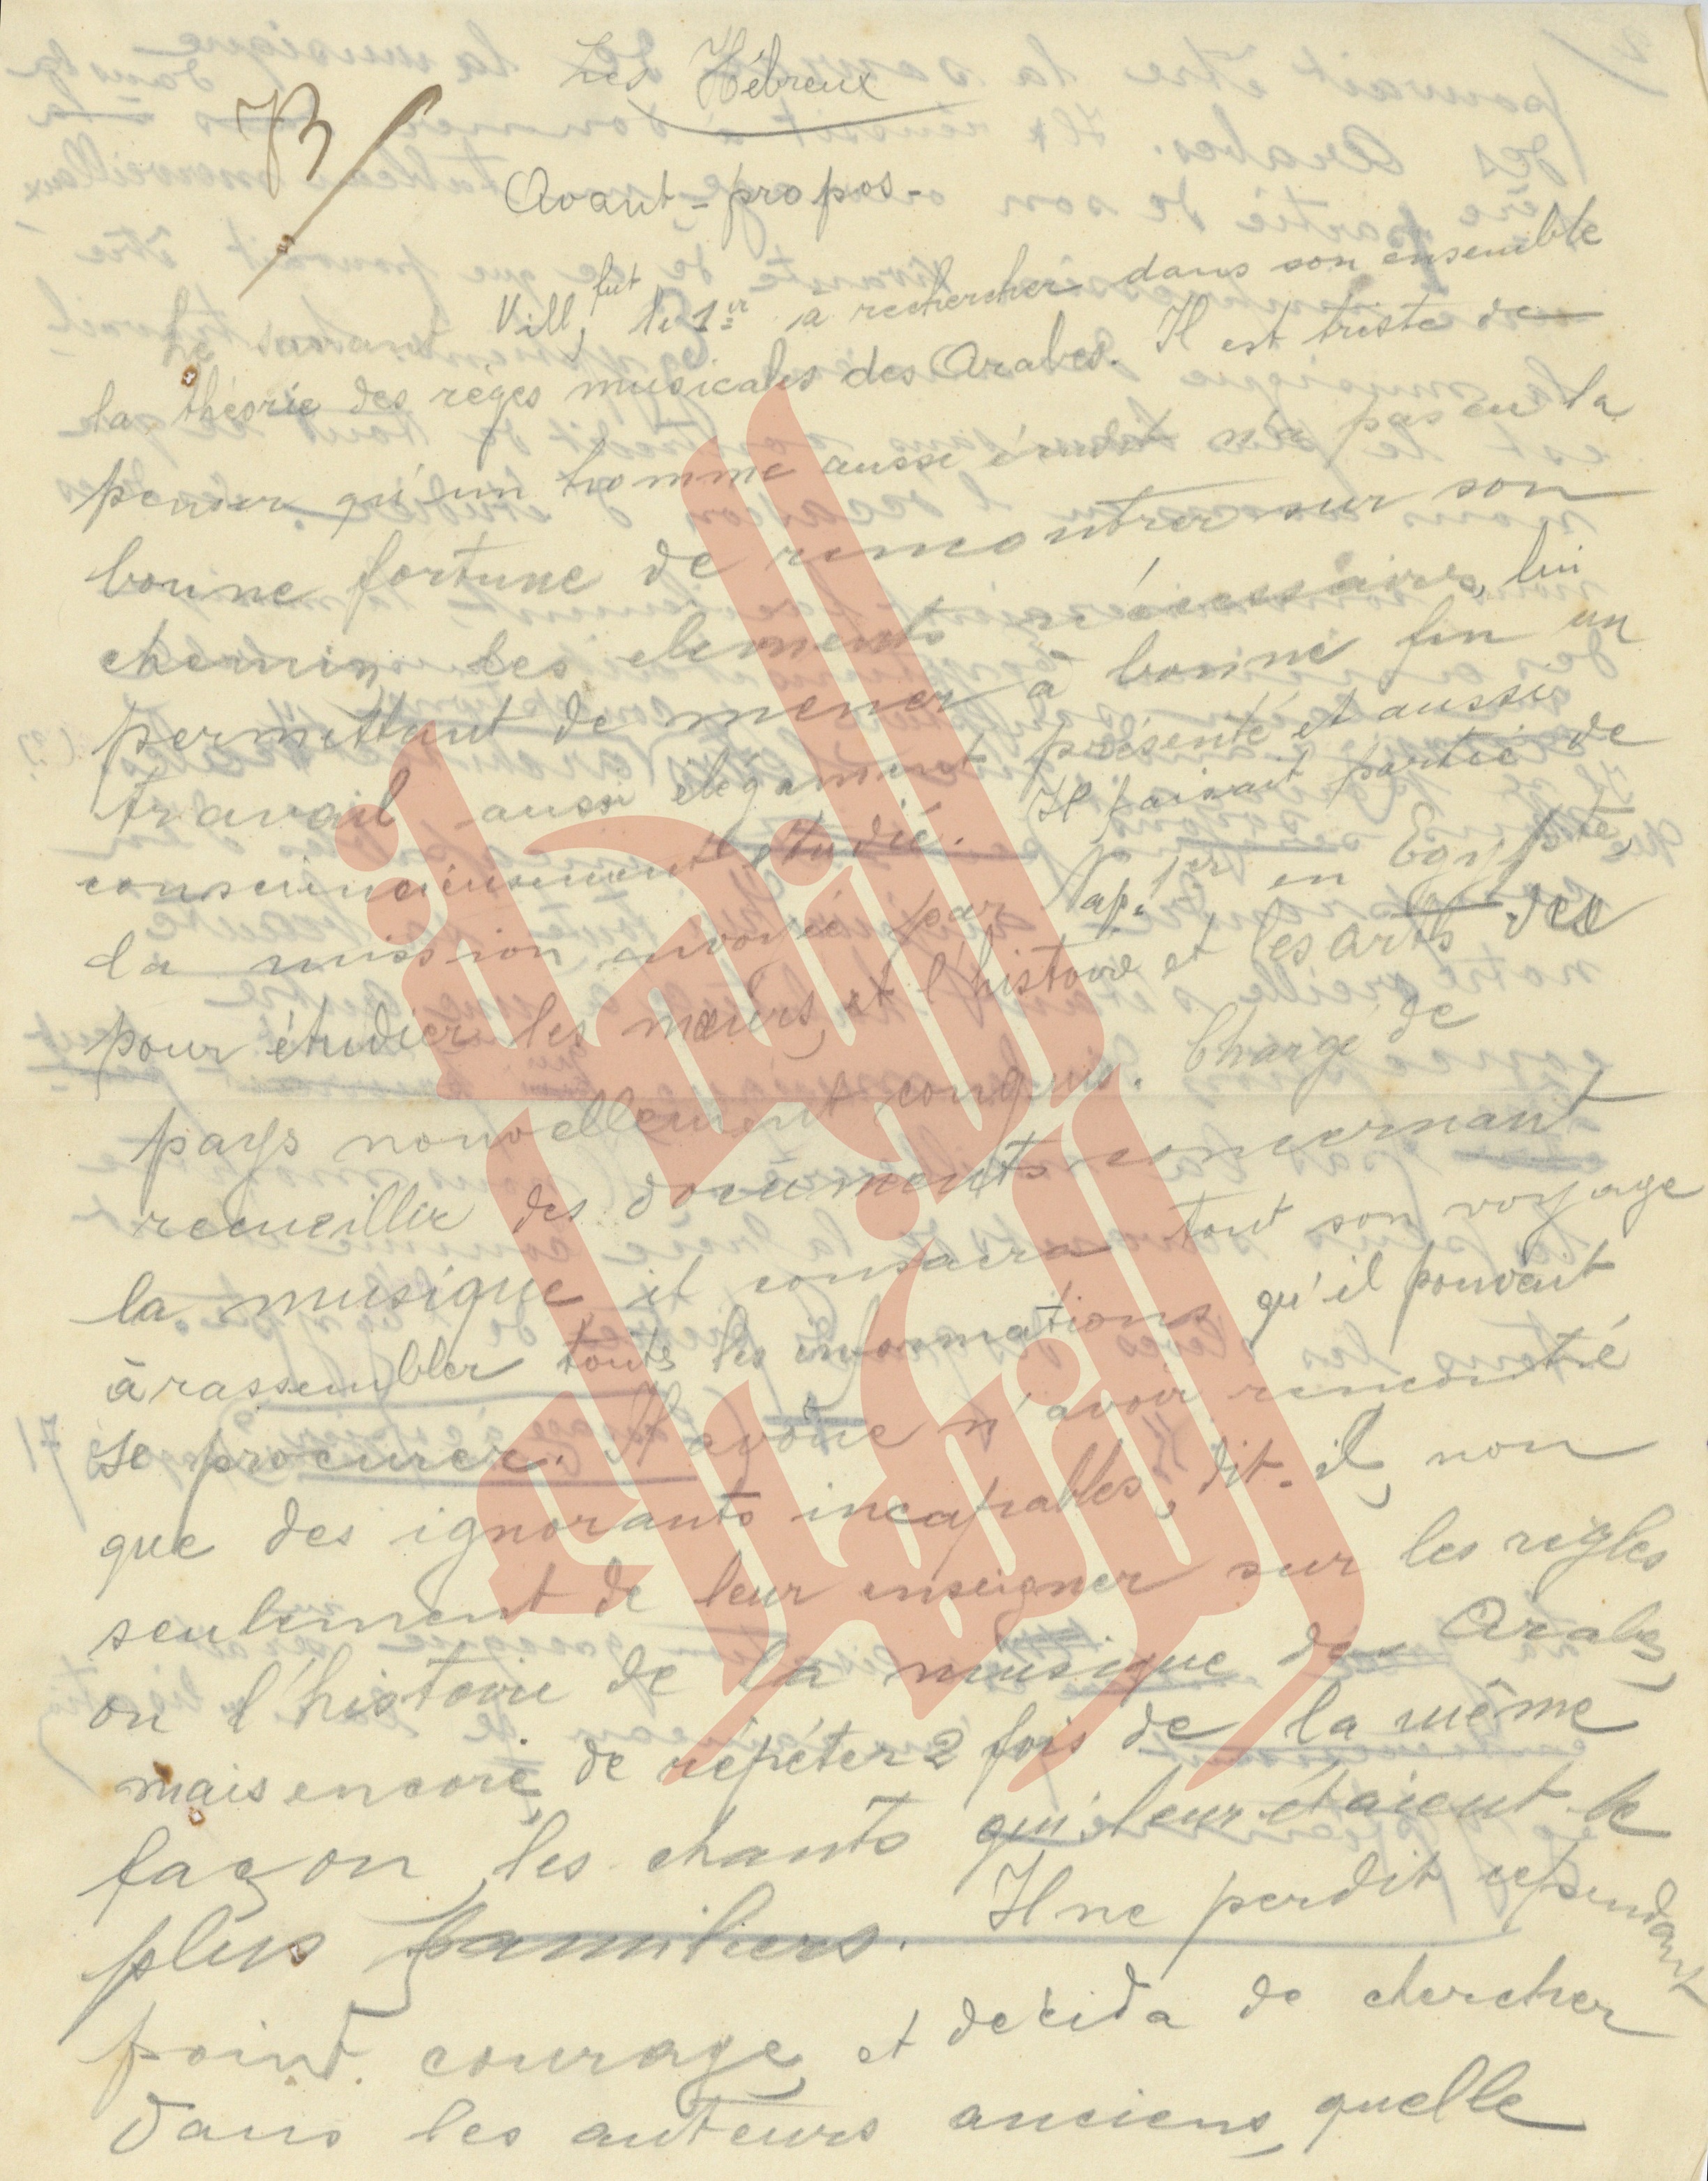 Les Hébreux
B/
Avant-propos-
Le savant Vill, fut le 1er à rechercher dans son ensemble
la théorie des règes musicales des Arabes. Il est triste de
penser qu'un homme aussi érudit n'a pas eu la
bonne fortune de rencontrer sur son
chemin, les elements nécessaires, lui
permettant de mener à bonne fin un
travail aussi élégamment présenté et aussi
consciencieusement étudié. Il faisait partie de
la mission envoyée par Nap. 1er en Egypte,
pour étudier les mœurs, et l'histoire et les arts des
pays nouvellement conquis. Chargé de
recueillir des documents concernant
la musique, il consacra tout son voyage
à rassembler touts les informations qu'il pouvait
se procurer. Il avoue n'avoir rencontré
que des ignorants incapables, dit-il, non
seulement de leur enseigner sur les règles
ou l'histoire de la musique des Arabes,
mais encore, de répéter 2 fois de la même
façon, les chants qui leur étaient le
plus familiers. Il ne perdit cependant
point courage, et décida de chercher
dans les auteurs anciens, quelle
النهراء